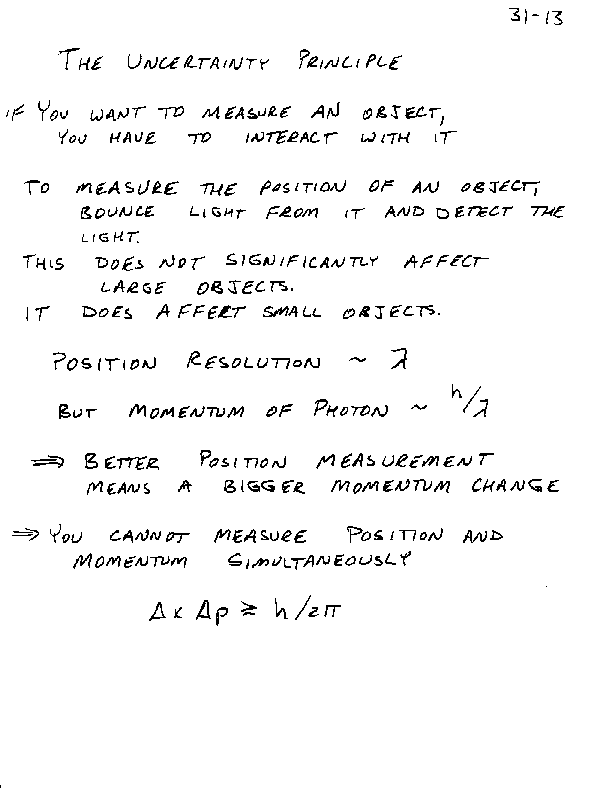 31-13
THE UNCERTAINTY PRINCIPLE
IF YOU WANT TO MEASURE AN OBJECT,
YOU HAVE TO INTERACT WITH IT
TO MEASURE THE POSITION OF AN OBJECT,
BOUNCE LIGHT FROM IT AND DETECT THE
LIGHT.
THIS DOES NOT SIGNIFICANTLY AFFECT
LARGE OBJECTS.
IT DOES AFFECT SMALL OBJECTS.
POSITION RESOLUTION ~ λ
BUT MOMENTUM OF PHOTON ~ h/λ
⇒ BETTER POSITION MEASUREMENT
MEANS A BIGGER MOMENTUM CHANGE
⇒ YOU CANNOT MEASURE POSITION AND
MOMENTUM SIMULTANEOUSLY
Δx Δp ≥ h/2π